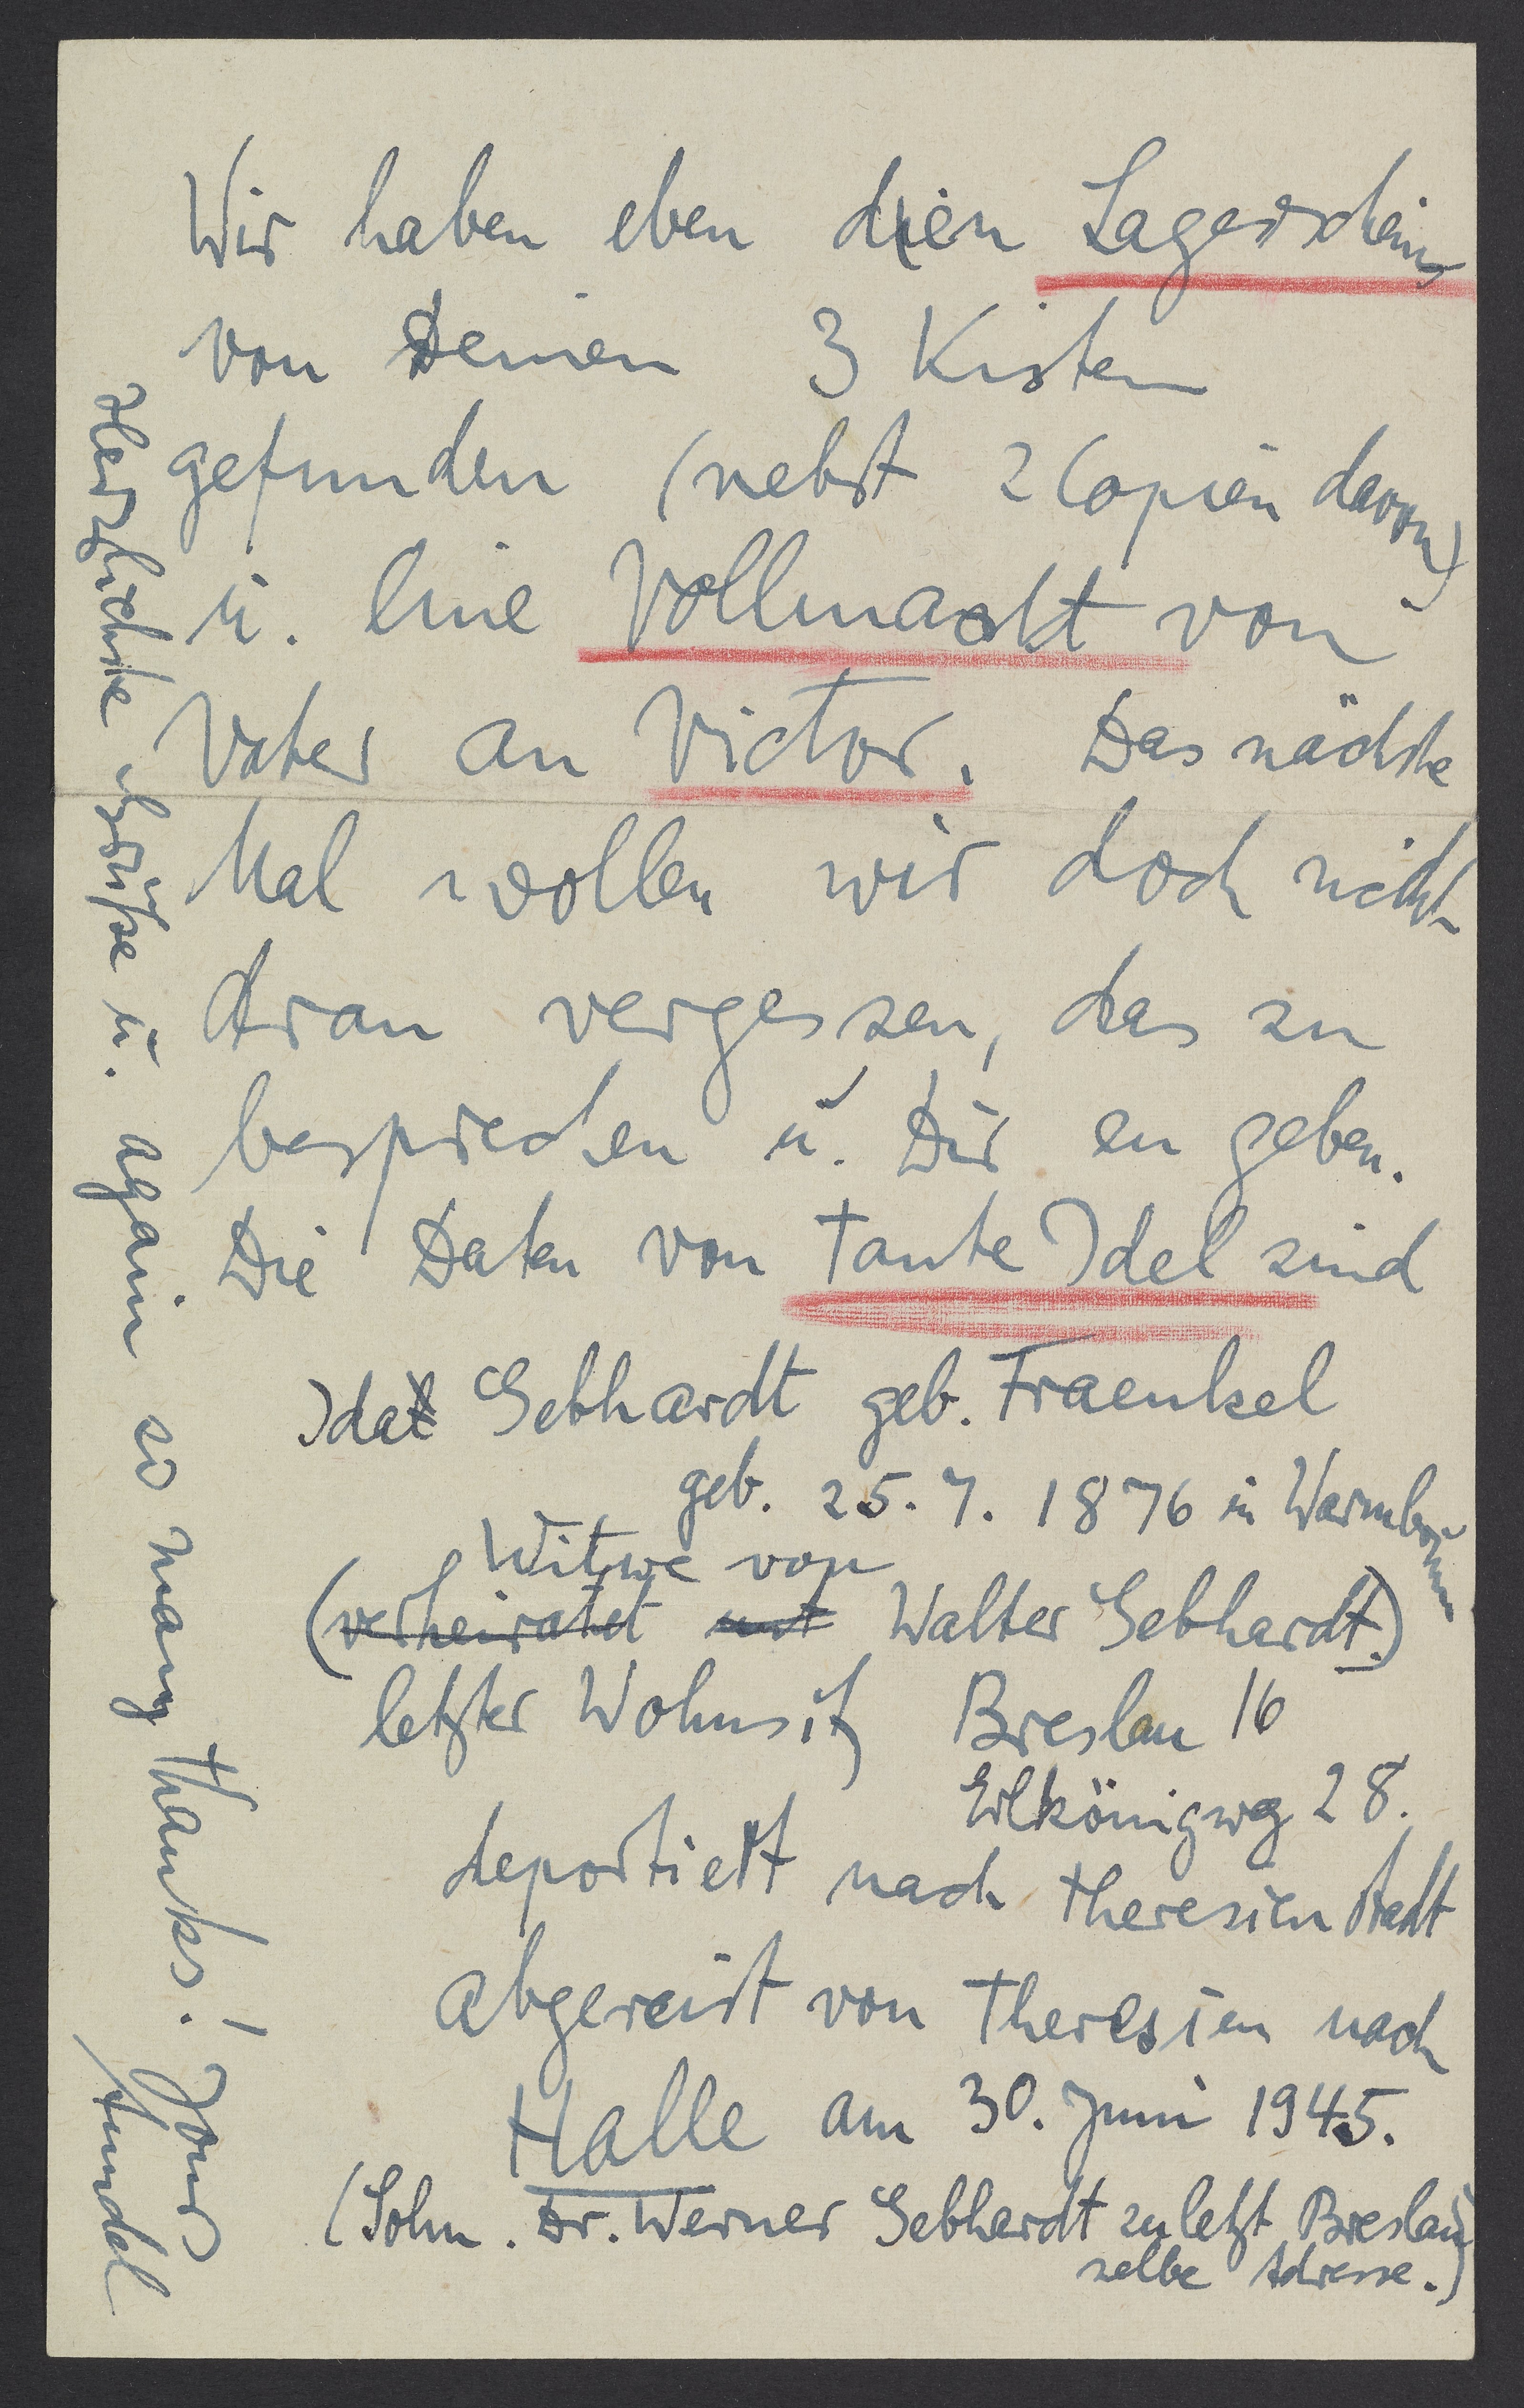 Wir haben eben den Lagerschein
von Deinen 3 Kisten
gefunden (nebst 2 Copien davon)
u. eine Vollmacht von
Vater an Victor. Das nächste
Mal wollen wir doch nicht
dran vergessen, das zu
besprechen u. Dir en geben.
Die Daten von Tante Idel sind
Ida Gebhardt geb. Fraenkel
geb. 25.7.1876 in Warmbrunn
Witwe von
(verheiratet mit Walter Gebhardt.)
letzter Wohnsitz Breslau 16
Erlkönigweg 28.
deportiert nach Theresienstadt
abgereist von Theresien nach
Halle am 30. Juni 1945.
(Sohn. Dr. Werner Gebhardt zuletzt Breslau
selbe Adresse.)
Herzlichste Grüsse u. again so many thanks! – Your